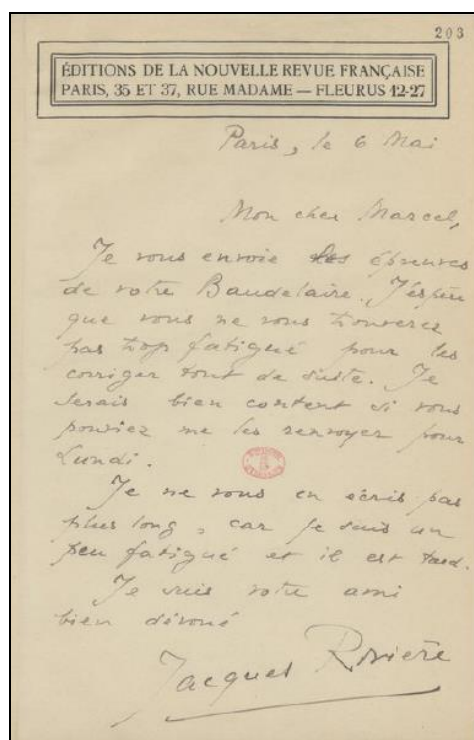 203
ÉDITIONS DE LA NOUVELLE REVUE FRANÇAISE
PARIS, 35 ET 37, RUE MADAME — FLEURUS 12-27
Paris, le 6 Mai
Mon cher Marcel,
Je vous envoie les épreuves
de votre Baudelaire. J'espère
que vous ne vous trouverez
pas trop fatigué pour les
corriger tout de suite. Je
serais bien content si vous
pouviez me les renvoyer pour
Lundi.
Je ne vous en écris pas
plus long, car je suis un
peu fatigué et il est tard.
Je suis votre ami
bien dévoué
Jacques Rivière